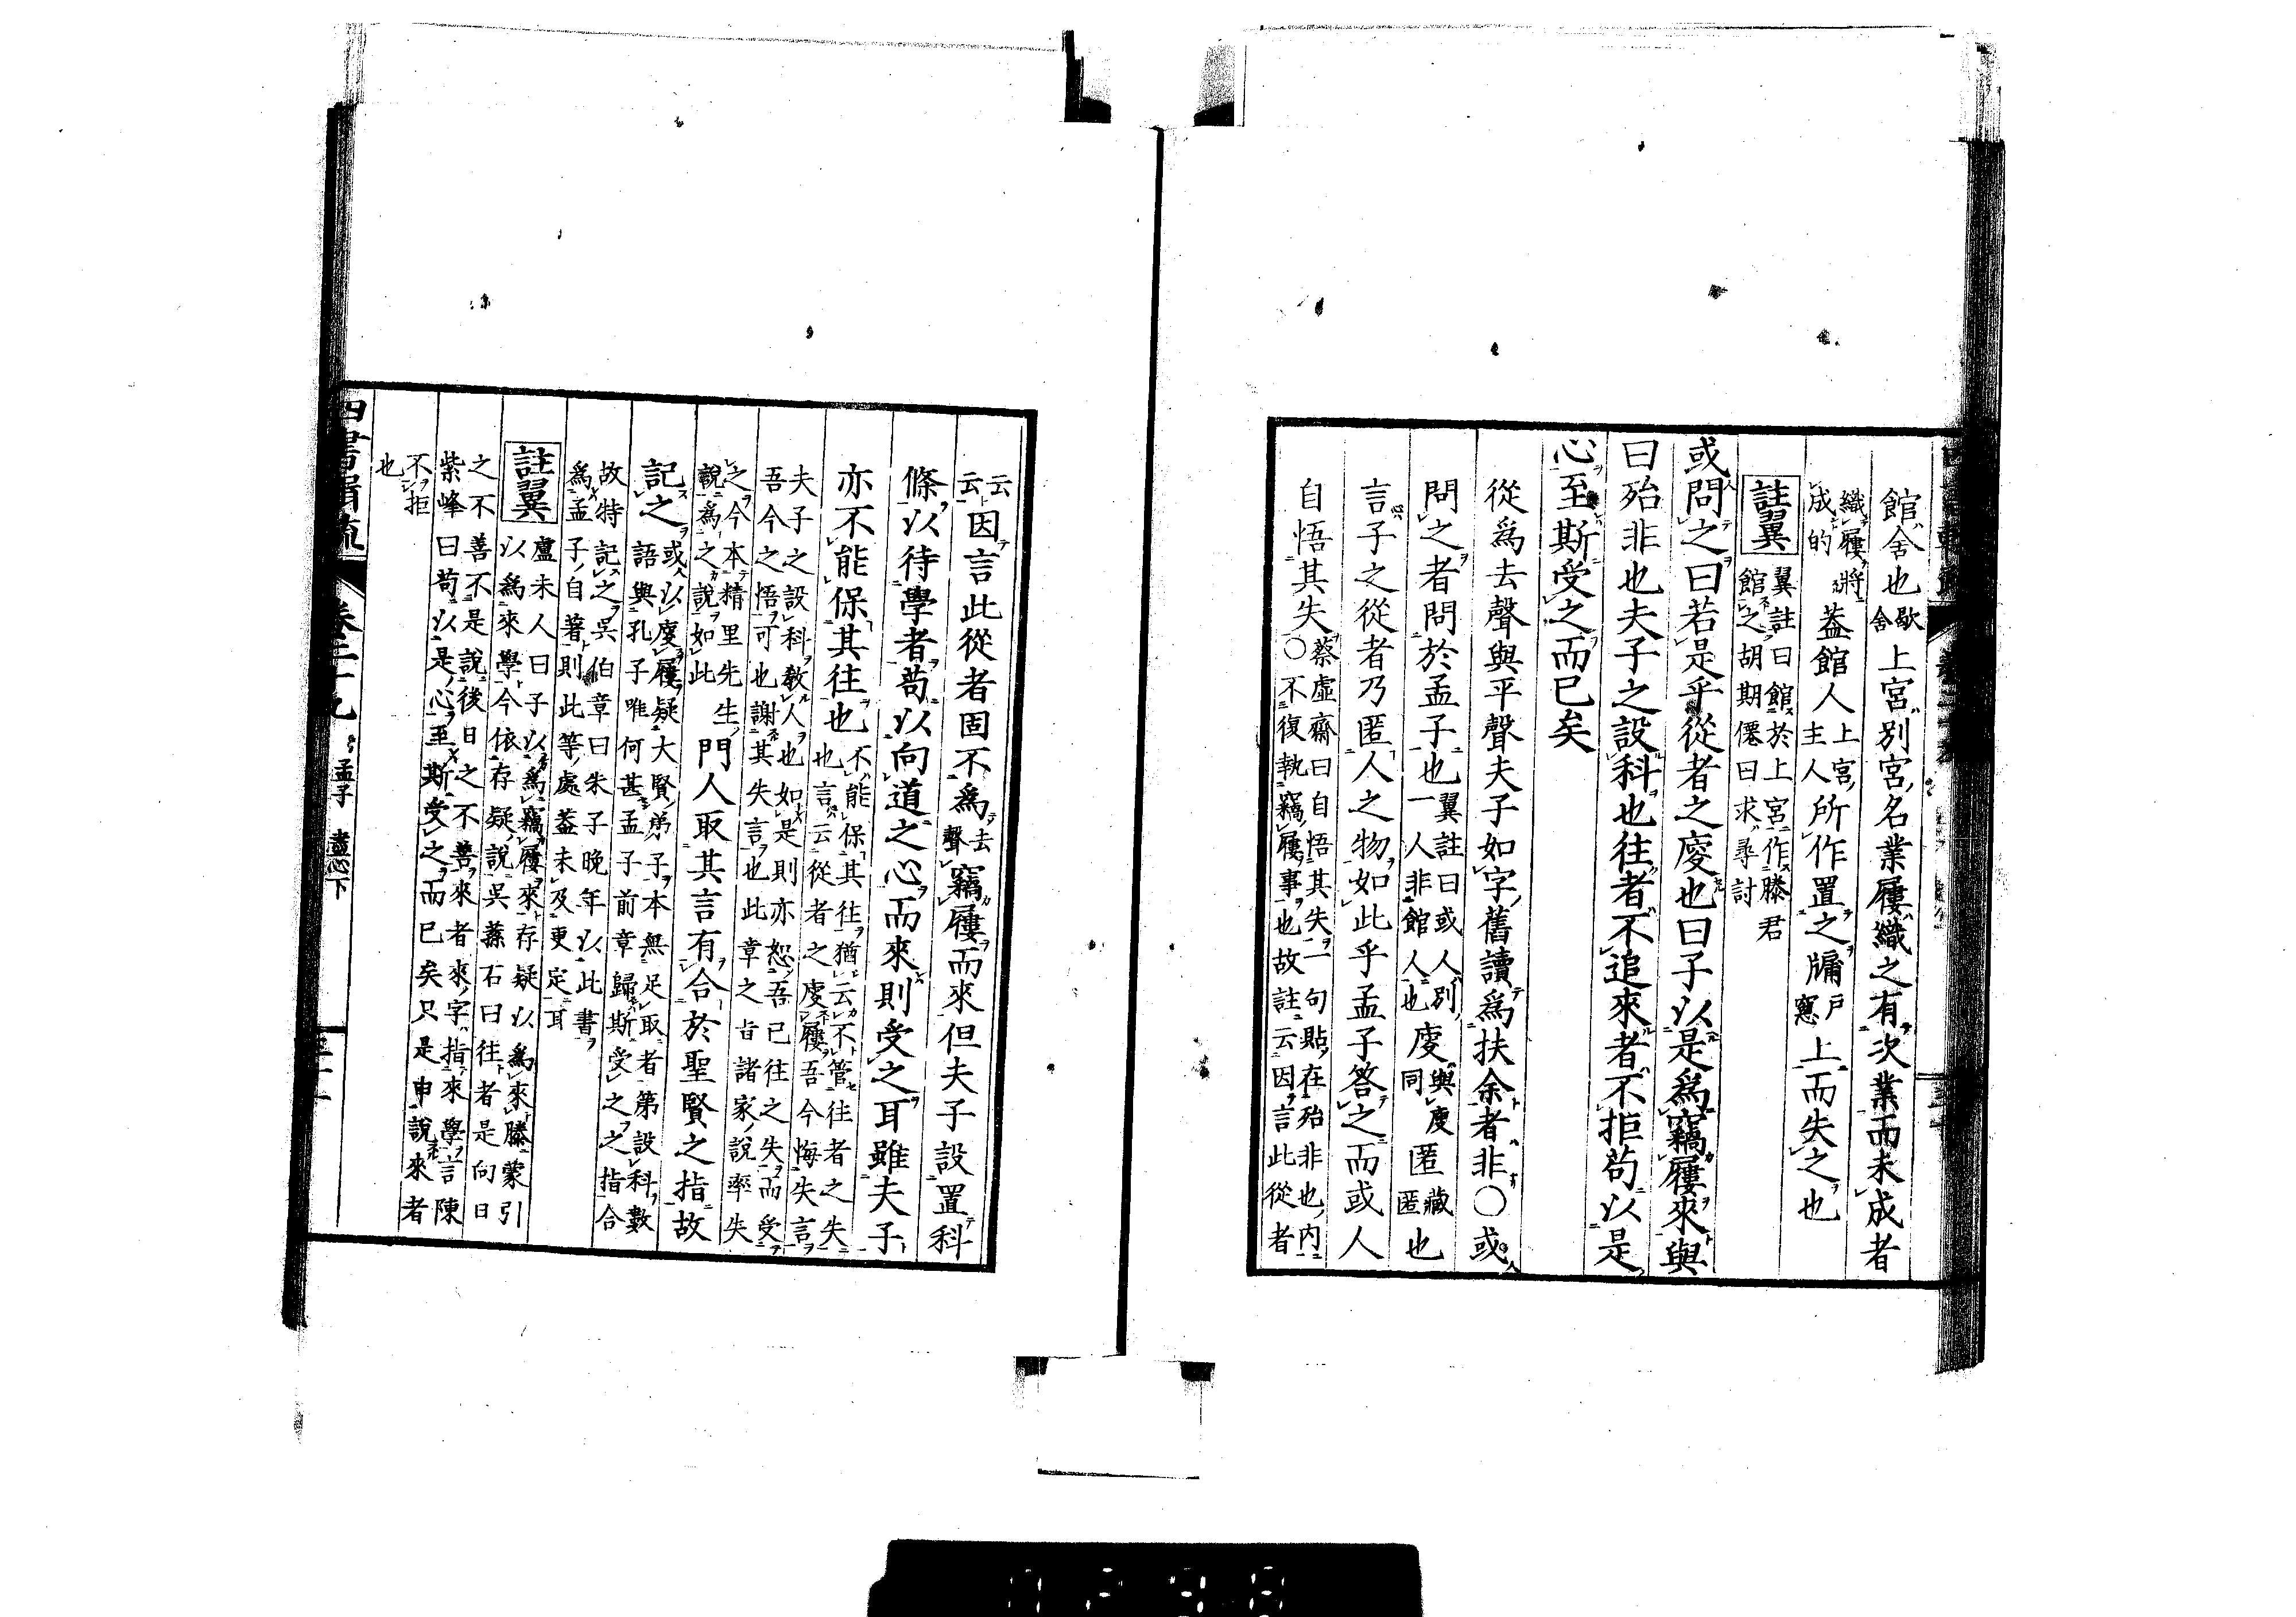 館舍也歇舍上宮別宮名業屨織之有次業而未成者
織屨將成的蓋館人上宮主人所作置之牖戶窓上而失之也
註翼 翼註曰館於上宮作滕君館之胡期僊曰求尋討
或問之曰若是乎從者之廋也曰子以是爲竊屨來與
曰殆非也夫子之設科也往者不追來者不拒苟以是
心至斯受之而已矣
從爲去聲與平聲夫子如字舊讀爲扶余者非〇或
問之者問於孟子也翼註曰或人別一人非館人也廋與廀同匿藏匿也
言子之從者乃匿人之物如此乎孟子答之而或人
自悟其失〇蔡虛齋曰自悟其失二句貼在殆非也內不復執竊屨事也故註云因言此從者
云云因言此從者固不爲去聲竊屨而來但夫子設置科
條以待學者苟以向道之心而來則受之耳雖夫子
亦不能保其往也不能保其往猶云不管往者之失也言云從者之廋屨吾今悔失言
夫子之設科教人也如是則亦恕吾已往之失而受吾今之悟可也謝其失言也此章之旨諸家說率失
之今本精里先生說爲之說如此門人取其言有合於聖賢之指故
記之或以廋屨疑大賢弟子本無足取者第設科數語與孔子唯何甚孟子前章歸斯受之之指合
故特記之吳伯章曰朱子晚年以此書爲孟子自著則此等處蓋未及更定耳
註翼 盧未人曰子以爲竊屨來存疑以爲來滕蒙引以爲來學今依存疑說吳蓀石曰往者是向日
之不善不是說後日之不善來者來字指來學言陳紫峰曰苟以是心至斯受之而已矣只是申說來者
不拒也
四書輯疏 卷二十九 孟子 盡心下